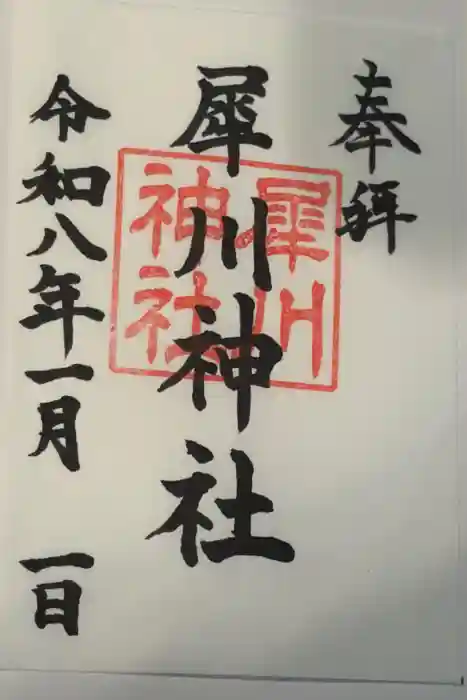 奉拝
犀川神社
犀川神社
令和八年一月 一日